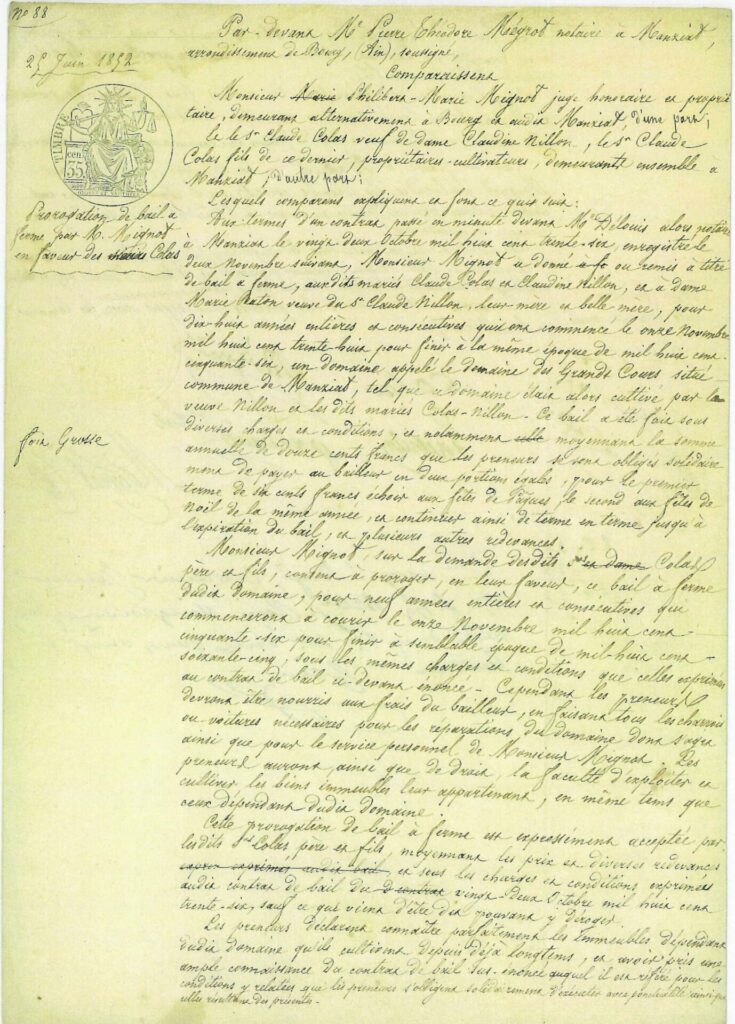 No 88
25 Juin 1852
TIMBRE
35
cen
Prorogation de bail à
ferme par M. Mignot
en faveur des Colas
fait Grosse
Par-devant Me Pierre Théodore Mégrot notaire à Manziat,
arrondissement de Bourg, (Ain), soussigné,
Comparaissent
Monsieur Marie Philibert-Marie Mignot juge honoraire et proprié
taire, demeurant alternativement à Bourg et audit Manziat, d'une part;
le sr Claude Colas veuf de dame Claudine Nillon, le sr Claude
Colas fils de ce dernier, propriétaires-cultivateurs, demeurants ensemble à
Manziat, d'autre part;
Lesquels comparens expliquent et font ce qui suit:
Aux termes d'un contrat passé en minute devant Me Delouis alors notaire
à Manziat le vingt deux Octobre mil huit cent trente-six, enregistré le
deux Novembre suivant, Monsieur Mignot a donné ou remis à titre
de bail à ferme, aux dits mariés Claude Colas et Claudine Nillon, et à dame
Marie Raton veuve du sr Claude Nillon, leur mère et belle mère, pour
dix-huit années entières et consécutives qui ont commencé le onze Novembre
mil huit cent trente-huit pour finir à la même époque de mil huit cent-
cinquante-six, un domaine appelé le domaine des Grands Cours situé
commune de Manziat, tel que ce domaine était alors cultivé par la
veuve Nillon et les dits mariés Colas-Nillon. Ce bail a été fait sous
diverses charges et conditions, et notamment moyennant la somme
annuelle de douze cents francs que les preneurs se sont obligés solidaire
ment de payer au bailleur en deux portions égales, pour le premier
terme de six cents francs échoir aux fêtes de Pâques, le second aux fêtes de
Noël de la même année, et continuer ainsi de terme en terme jusqu'à
l'expiration du bail, et plusieurs autres redevances.
Monsieur Mignot, sur la demande desdits srs et dame Colas
père et fils, consent à proroger, en leur faveur, ce bail à ferme
dudit domaine, pour neuf années entières et consécutives qui
commenceront à courir le onze Novembre mil huit cent-
cinquante-six pour finir à semblable époque de mil-huit cent-
soixante-cinq, sous les mêmes charges et conditions que celles exprimées
au contrat de bail ci-devant énoncé. Cependant les preneurs
devront être nourris aux frais du bailleur, en faisant tous les charrois
ou voitures nécessaires pour les réparations du domaine dont s'agit
ainsi que pour le service personnel de Monsieur Mignot. Les
preneurs auront, ainsi que de droit, la faculté d'exploiter et
cultiver les biens immeubles leur appartenant, en même tems que
ceux dépendant dudit domaine.
Cette prorogation de bail à ferme est expressément acceptée par
lesdits srs Colas père et fils, moyennant les prix et diverses redevances
exprimés audit bail, et sous les charges et conditions exprimées
audit contrat de bail du vingt-deux Octobre mil huit cent
trente-six, sauf ce qui vient d'être dit pouvant y déroger.
Les preneurs déclarent connaître parfaitement les immeubles dépendant
dudit domaine qu'ils cultivent depuis déjà longtems, et avoir pris une
ample connaissance du contrat de bail sus-énoncé auquel il est référé pour les
conditions y relatées que les preneurs s'obligent solidairement d'exécuter avec ponctualité ainsi que
celles résultant des présentes.